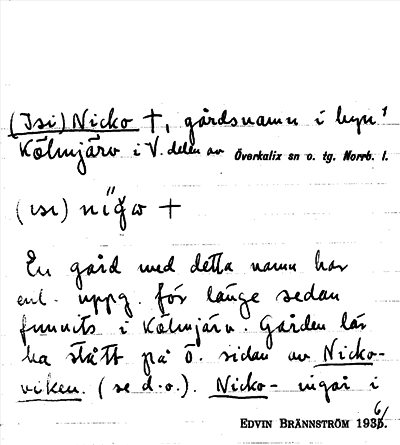 (Isi) Nicko †, gårdsnamn i byn
Kölmjärv i V. delen av Överkalix sn o. tg. Norrb. l.
(ısı)
En gård med detta namn har
enl. uppg. för länge sedan
funnits i Kölmjärv. Gården lär
ha stått på ö. sidan av Nicko-
viken. (se d.o.). Nicko- ingår i
EDVIN BRÄNNSTRÖM 1936.